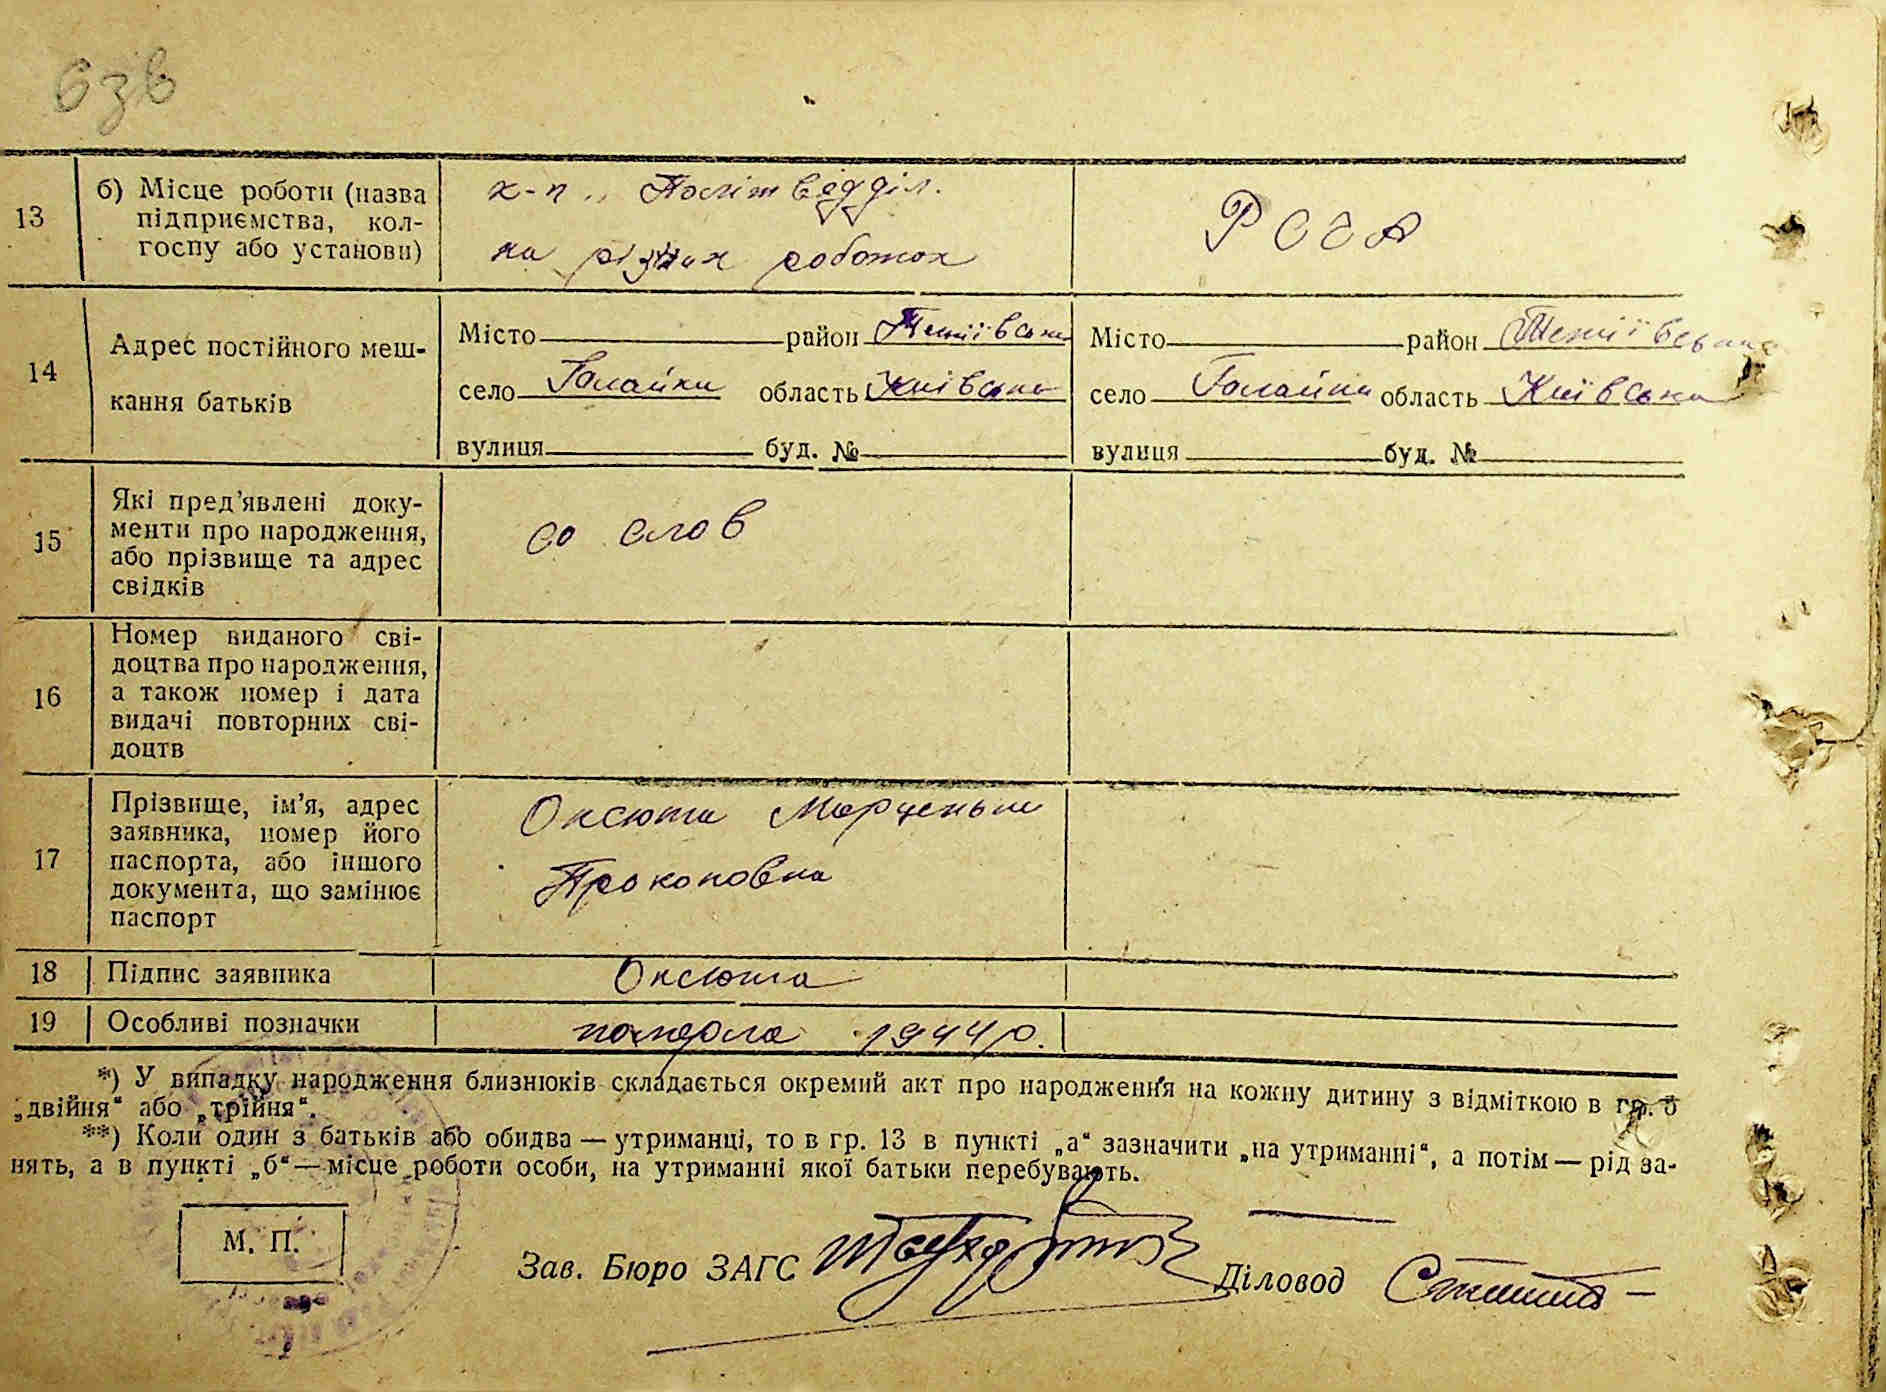 63в
13
б) Місце роботи (назва
підприємства, кол-
госпу або установи)
к-п „ Політвідділ.
на різних роботах
РСЧА
14
Адрес постійного меш-
кання батьків
Місто район Тетіївськи
село Галайки область Київська
вулиця буд. №
Місто район Тетіївський
село Галайки область Київська
вулиця буд. №
15
Які пред'явлені доку-
менти про народження,
або прізвище та адрес
свідків
со слов
16
Номер виданого сві-
доцтва про народження,
а також номер і дата
видачі повторних сві-
доцтв
17
Прізвище, ім'я, адрес
заявника, номер його
паспорта, або іншого
документа, що замінює
паспорт
Оксюта
Прокоповна
18
Підпис заявника
Оксюта
19
Особливі позначки
померла 1944 р.
*) У випадку народження близнюків складається окремий акт про народження на кожну дитину з відміткою в гр. 5
„двійня“ або „трійня“.
**) Коли один з батьків або обидва — утриманці, то в гр. 13 в пункті „а“ зазначити „на утриманні“, а потім — рід за-
нять, а в пункті „б“ — місце роботи особи, на утриманні якої батьки перебувають.
М. П.
Зав. Бюро ЗАГС
Діловод